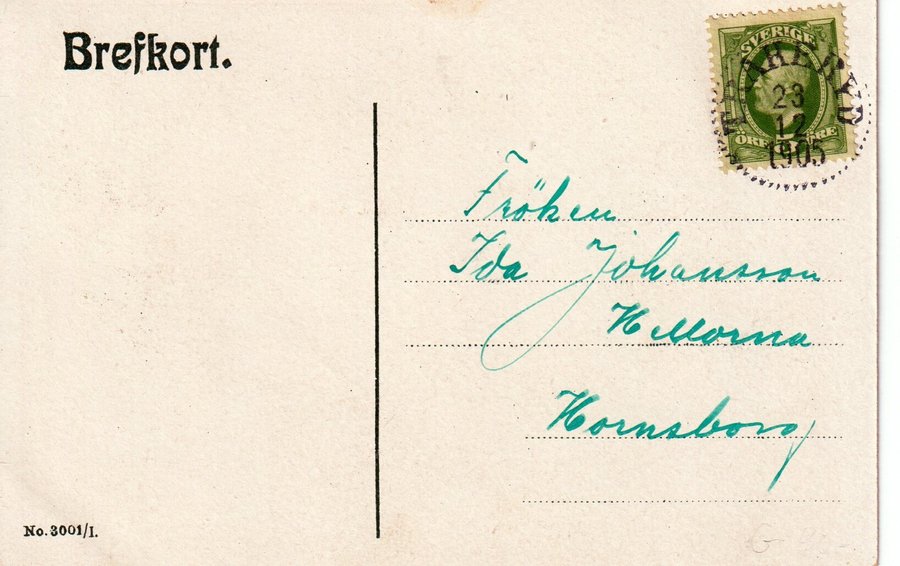 Brefkort.
SVERIGE
23
12
1905
ÖRE ÖRE
Fröken
Ida Johansson
Hornsborg
No. 3001/I.